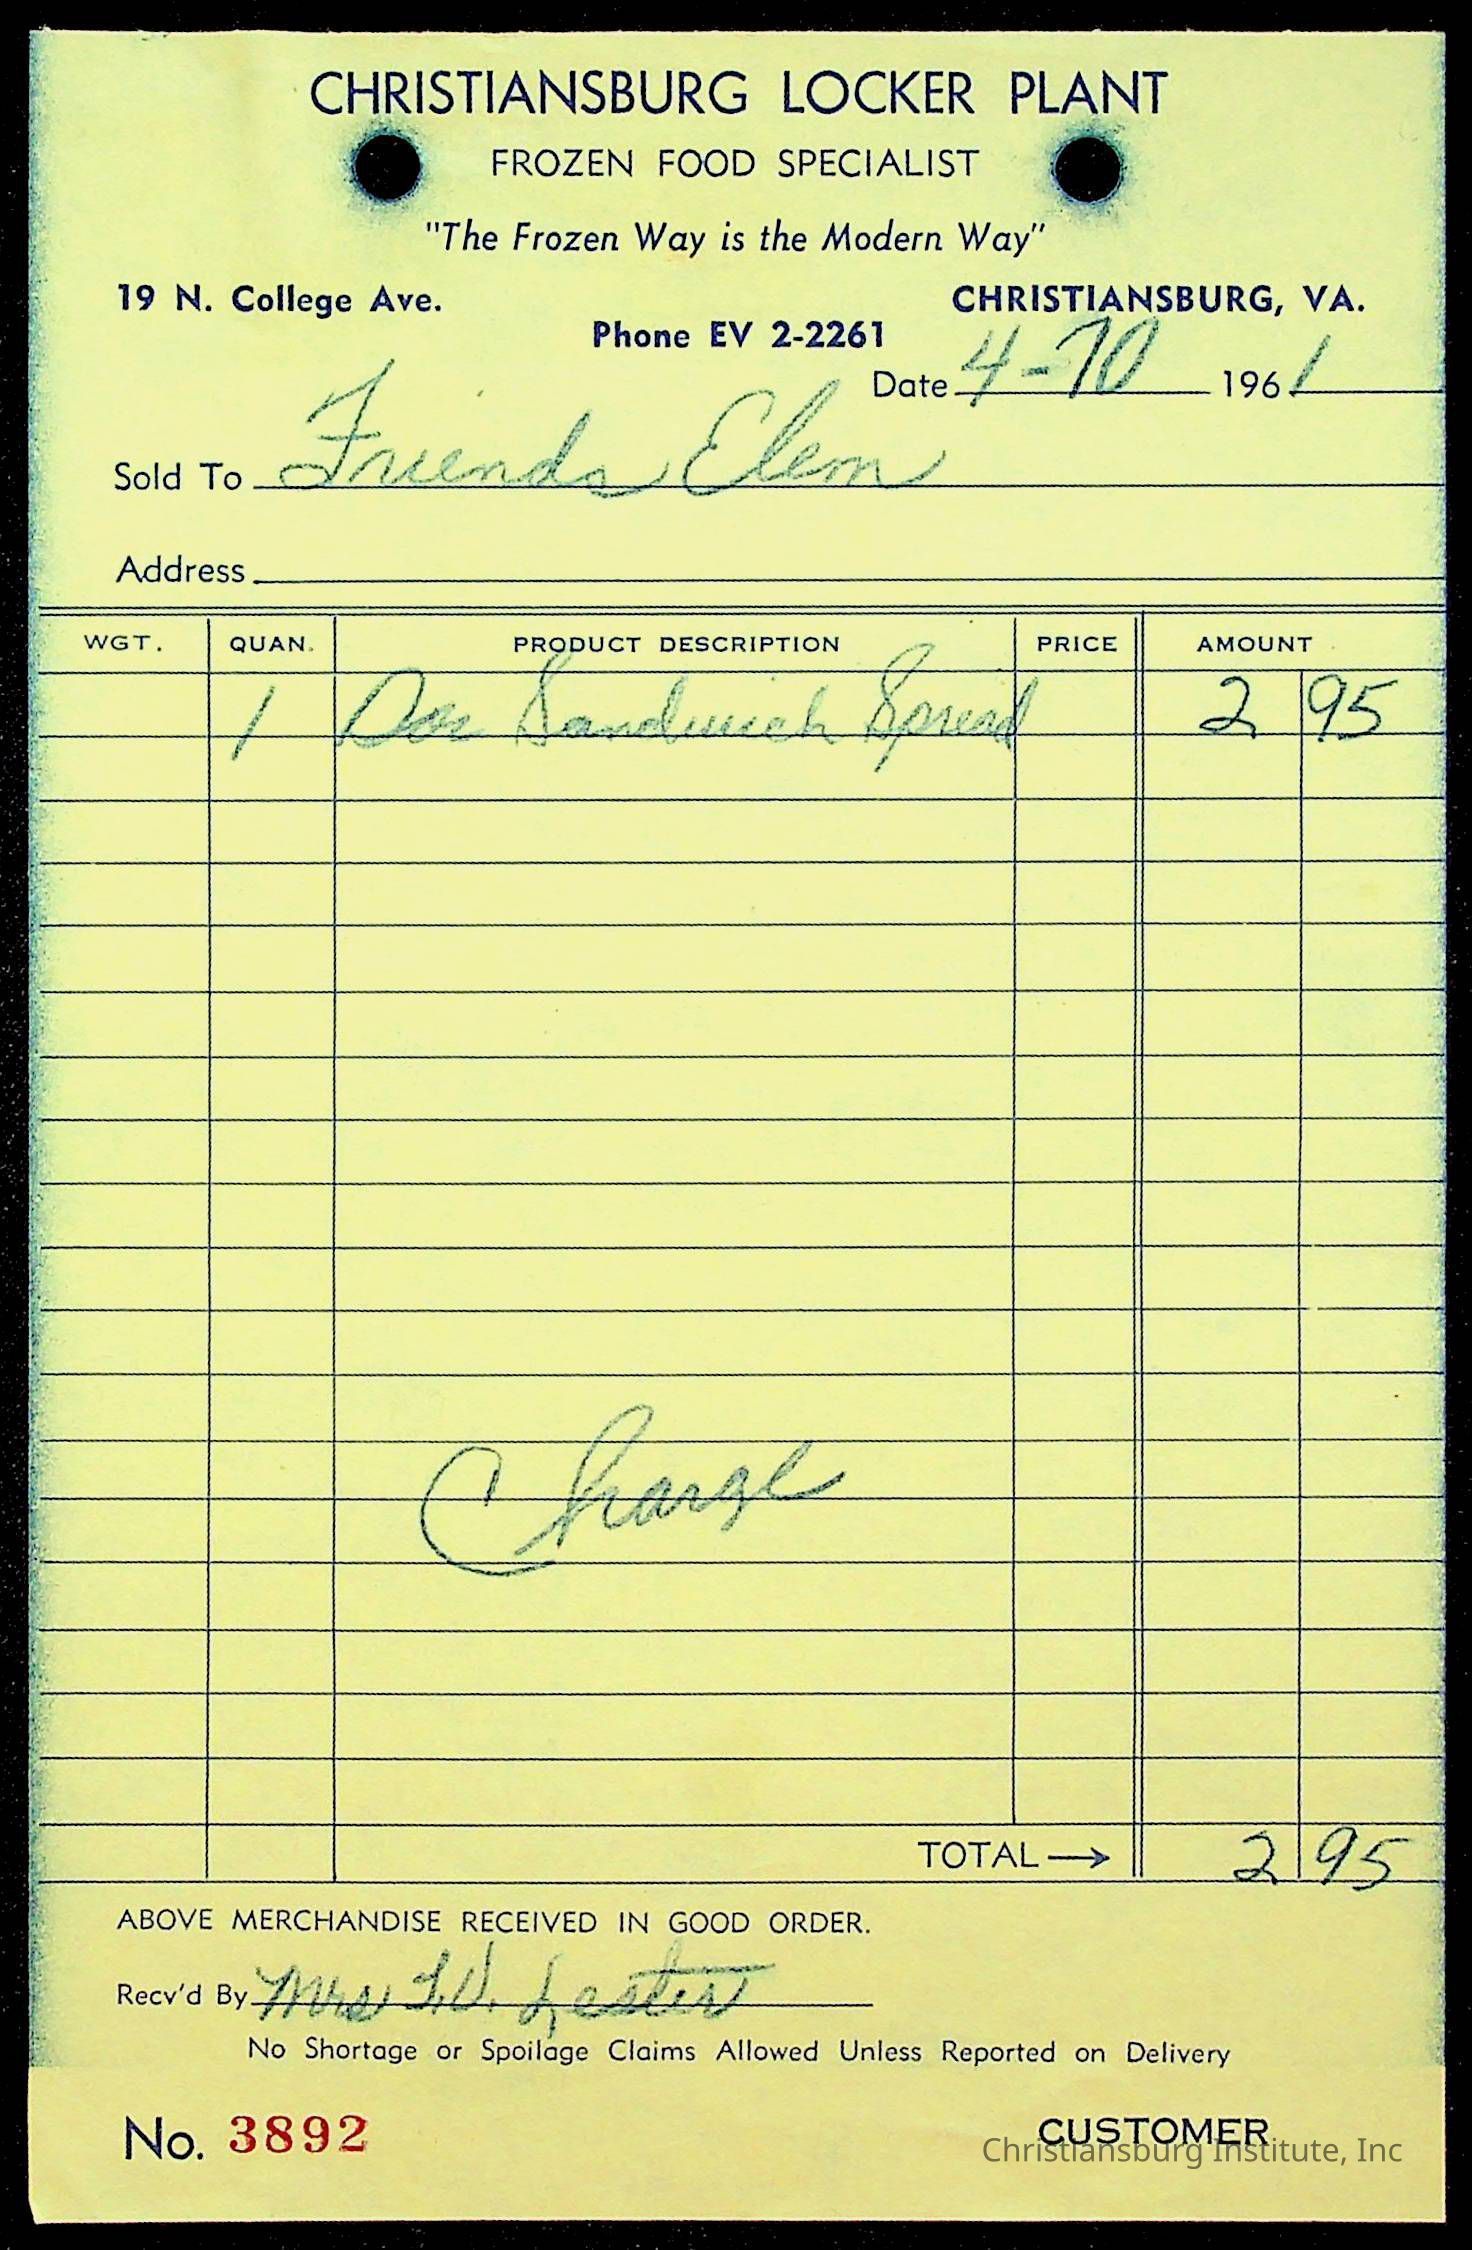 CHRISTIANSBURG LOCKER PLANT
FROZEN FOOD SPECIALIST
"The Frozen Way is the Modern Way"
19 N. College Ave. CHRISTIANSBURG, VA.
Phone EV 2-2261
Date 4-10 1961
Sold To Friends Elem
Address
WGT. QUAN. PRODUCT DESCRIPTION PRICE AMOUNT
1 Doz Sandwich Spread 2 95
Charge
TOTAL → 2 95
ABOVE MERCHANDISE RECEIVED IN GOOD ORDER.
Recv'd By Mrs Lester
No Shortage or Spoilage Claims Allowed Unless Reported on Delivery
No. 3892 CUSTOMER
Christiansburg Institute, Inc